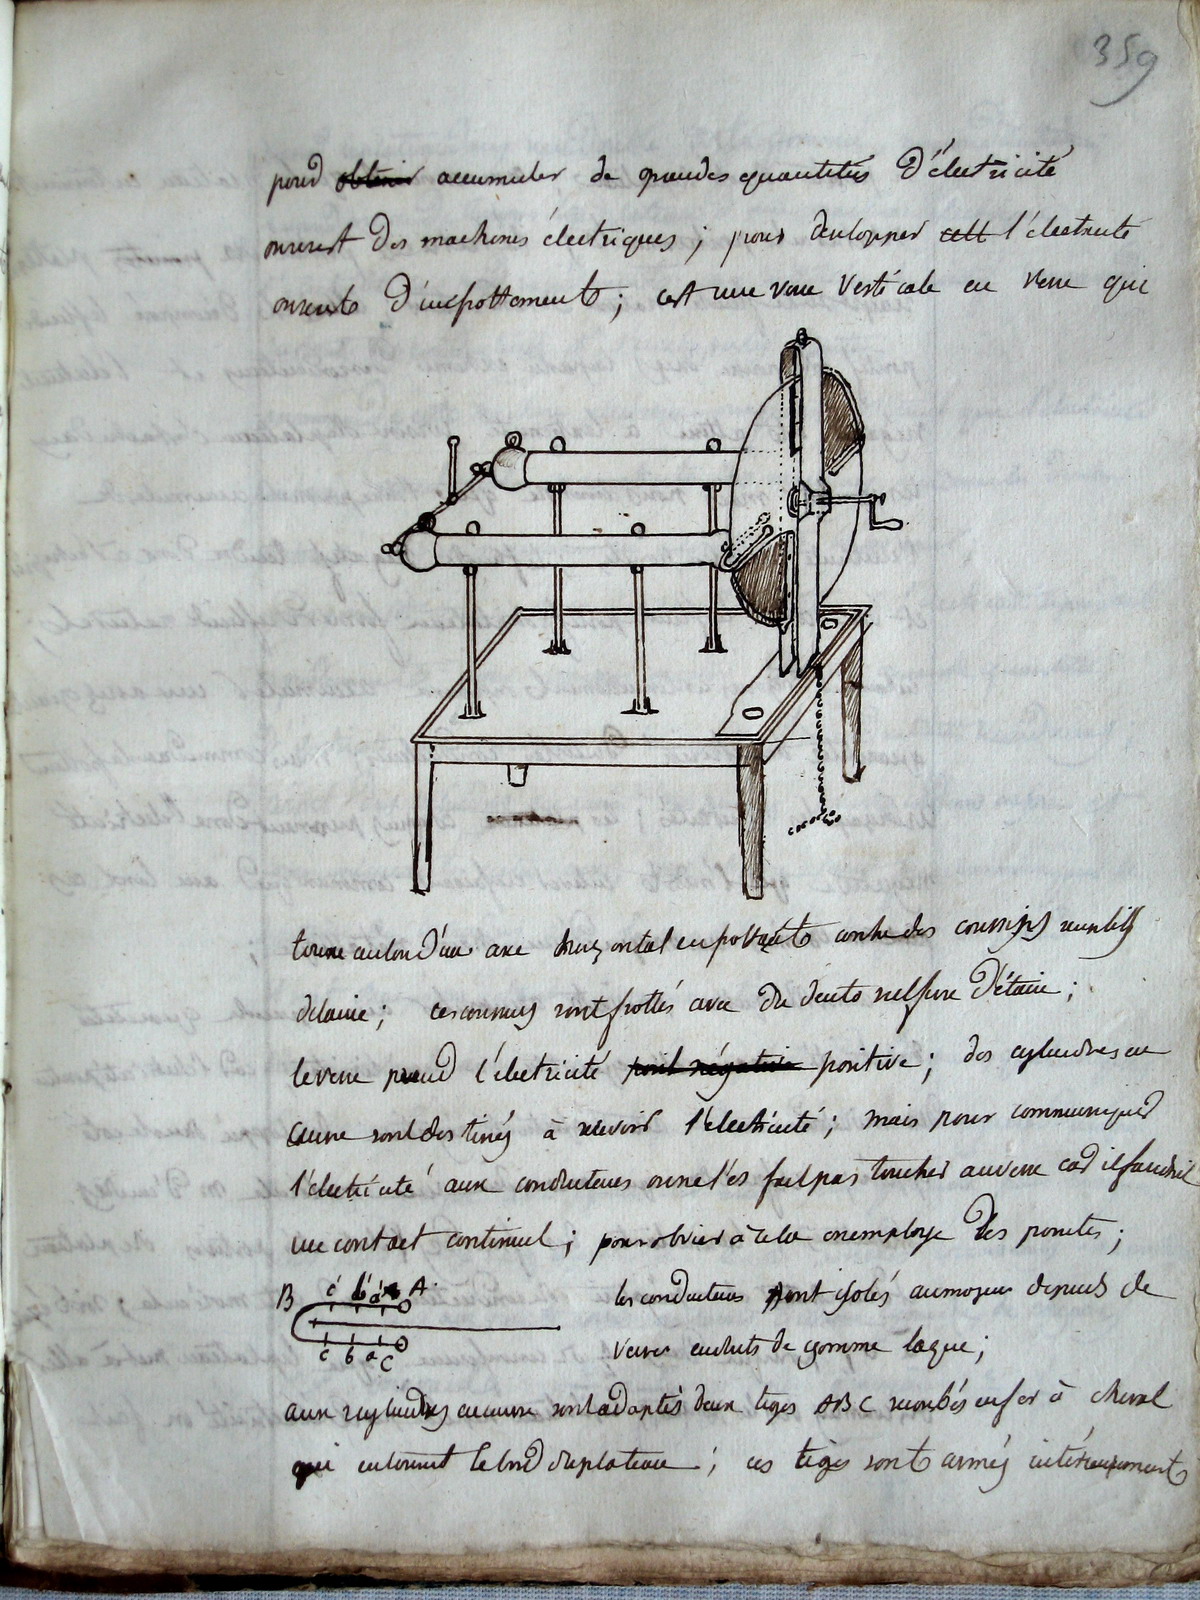 359
pour obtenir accumuler de grandes quantités d'électricité
on se sert des machines électriques ; pour développer cett l'électricité
on se sert d'un frottement ; c'est une roue verticale en verre qui
tourne autour d'un axe horizontal en frottant contre des coussins remplis
de laine ; ces coussins sont frottés avec du deuto sulfure d'étain ;
le verre prend l'électricité positive ; des cylindres en
cuivre sont destinés à recevoir l'électricité ; mais pour communiquer
l'électricité aux conducteurs on ne les fait pas toucher au verre car il faudrait
un contact continuel ; pour obvier à cela on employe des pointes ;
B c' b' a' A
c b a C
les conducteurs sont isolés au moyen de pieds de
verre enduits de gomme laque ;
aux cylindres en cuivre sont adaptés deux tiges ABC recourbés en fer à cheval
qui entourent le bord du plateau ; ces tiges sont armés intérieurement